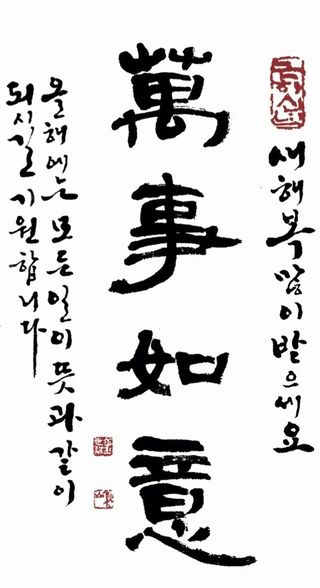 새해 복 많이 받으세요
萬事如意
올해에는 모든 일이 뜻과 같이
되시길 기원합니다